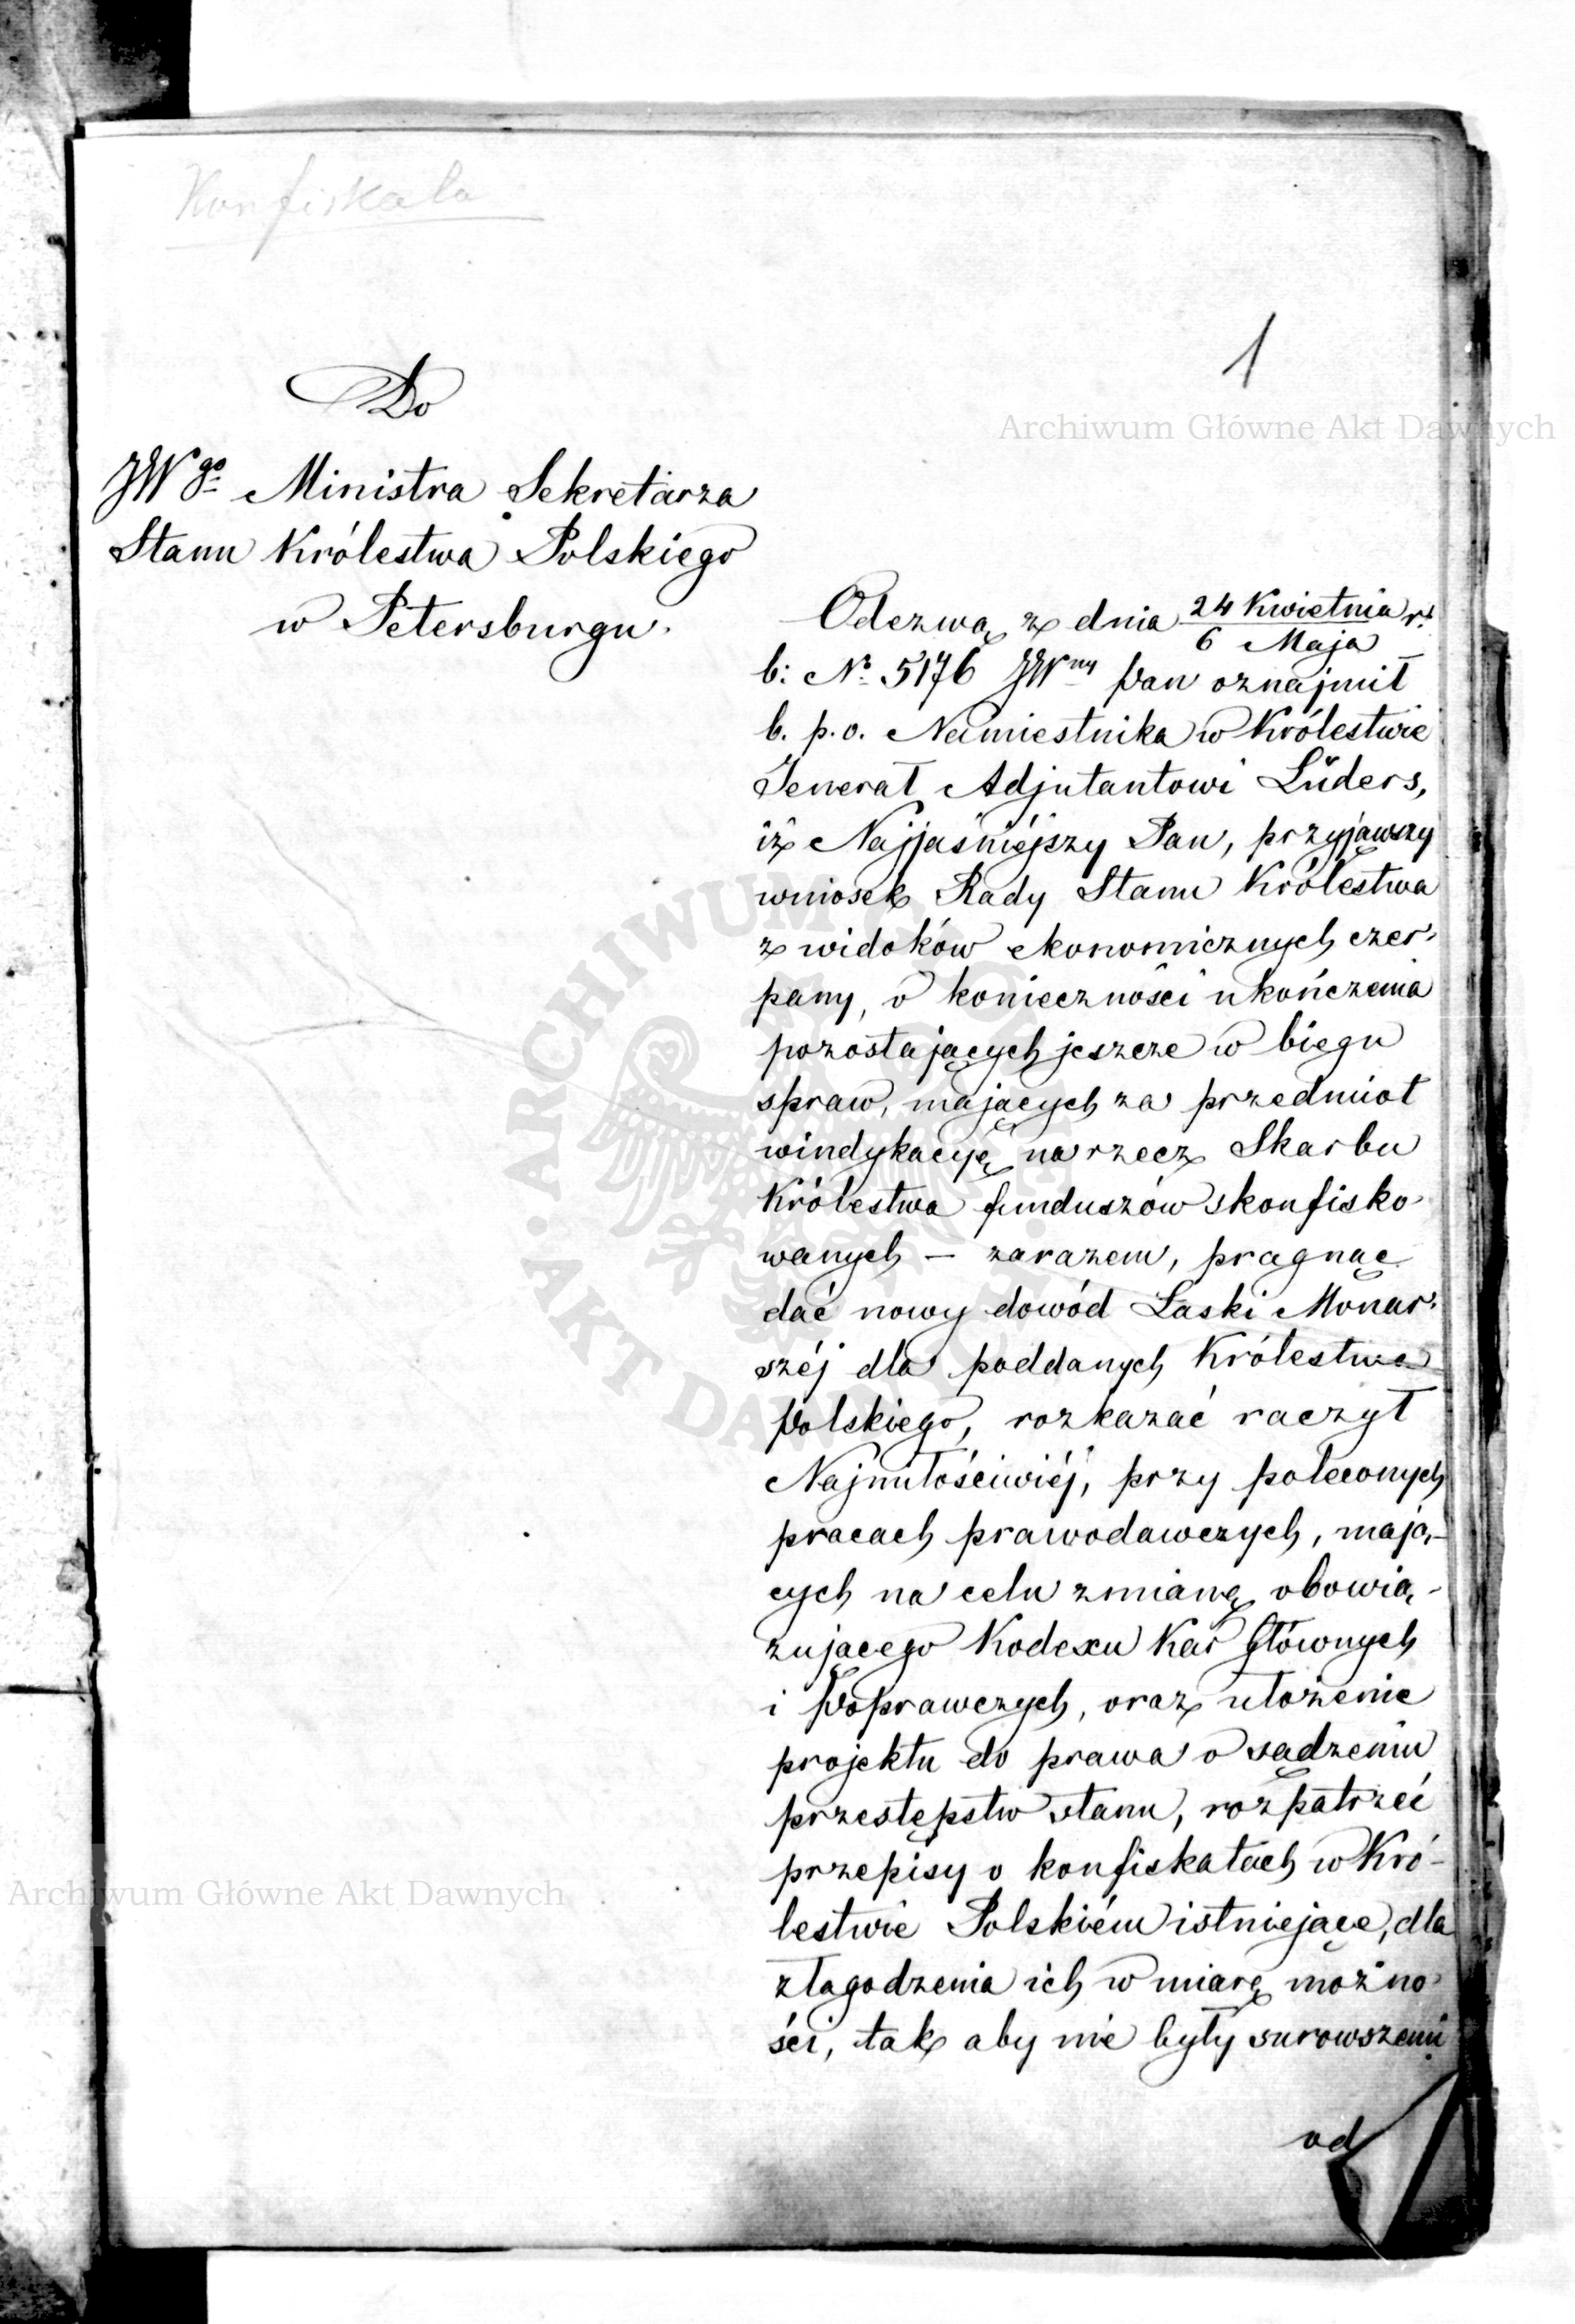 Konfiskata
1
Do
JWgo Ministra Sekretarza
Stanu Królestwa Polskiego
w Petersburgu.
Odezwą z dnia 24 Kwietnia r.
6 Maja
b: No 5176 JWny Pan oznajmił
b. p. o. Namiestnika w Królestwie
Jenerał Adjutantowi Lüders,
iż Najjaśniéjszy Pan, przyjąwszy
wniosek Rady Stanu Królestwa
z widoków ekonomicznych czer-
pany, o konieczności ukończenia
pozostających jeszcze w biegu
spraw, mających za przedmiot
windykacyę na rzecz Skarbu
Królestwa funduszów skonfisko-
wanych – zarazem, pragnąc
dać nowy dowód Łaski Monar-
széj dla poddanych Królestwa
Polskiego, rozkazać raczył
Najmiłościwiéj, przy poleconych
pracach prawodawczych, mają-
cych na celu zmianę obowią-
zującego Kodexu Kar Głównych
i Poprawczych, oraz ułożenie
projektu do prawa o sądzeniu
przestępstw stanu, rozpatrzeć
przepisy o konfiskatach w Kró-
lestwie Polskiém istniejące, dla
złagodzenia ich w miarę możno-
ści, tak aby nie były surowszemi
od
Archiwum Główne Akt Dawnych
Archiwum Główne Akt Dawnych